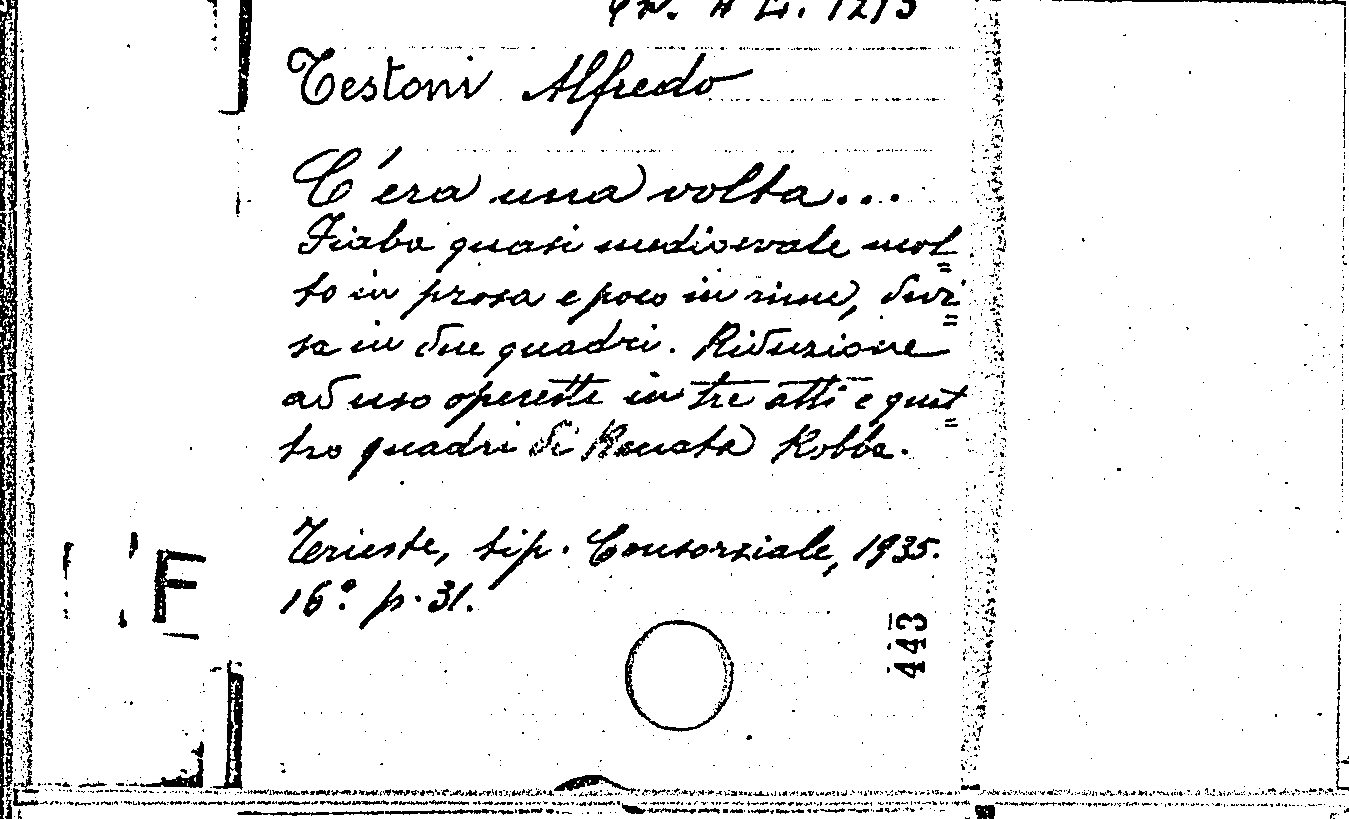 Testoni Alfredo
C'era una volta...
Fiaba quasi medioevale mol=
to in prosa e poco in rime, divi=
sa in due quadri. Riduzione
ad uso operette in tre atti e quat=
tro quadri di Renata Robba.
Trieste, tip. Consorziale, 1935.
16.° p. 31.
443
F